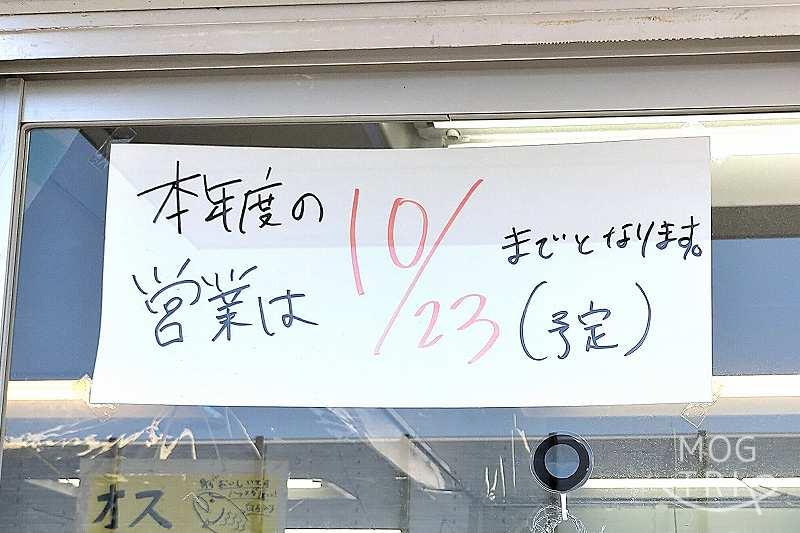 本年度の
営業は
10/23
までとなります。
(予定)
オス
MOG